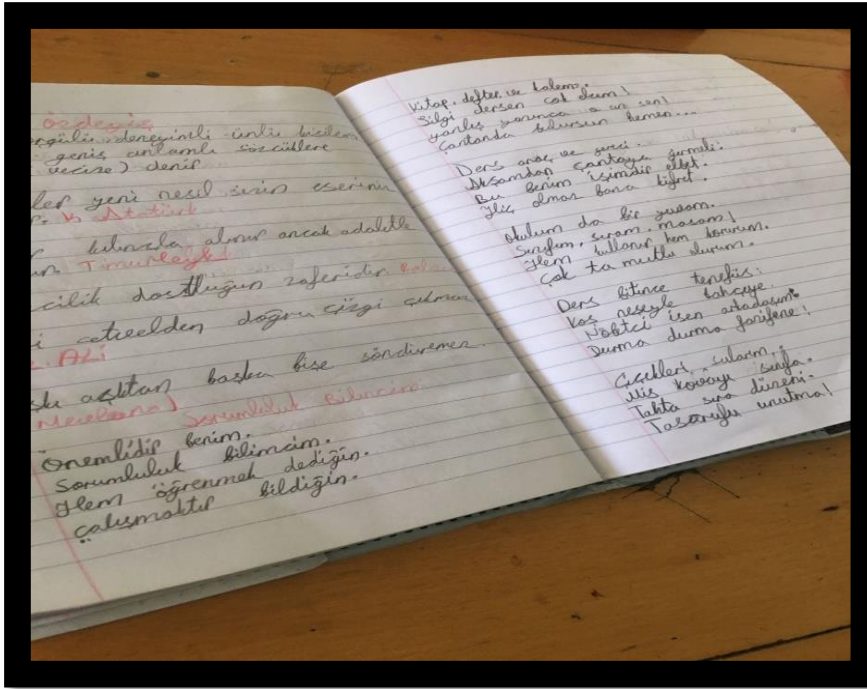 özdeyiş
görgülü deneyimli ünlü kişilen
geniş anlamlı sözcüklere
vecize) denir
ler yeni nesil sizin eseriniz
K Atatürk
kılınızla alınır ancak adaletle
Timurleyk
cilik dostluğun zaferidir
doğru çizgi çıkmaz
. ALi
aşktan başka bişe söndüremez.
Mevlana)
Sorumluluk Bilincim
Önemlidir benim.
Sorumluluk bilimcim.
Hem öğrenmek dediğin.
Çalışmaktır bildiğin.
Kitap, defter, ve kalem.
Silgi dersen çok dum!
Yanlış yazınca a an seni
Çantanda bulursun hemen...
Ders araç ve gereci.
Akşamdan çantaya girmeli.
Bu benim işimdir elbet.
Hiç olmaz bana külfet.
Okulum da bir yuvam.
Sınıfım, sıram, masam!
Hem kullanır hem korurum.
Çok ta mutlu olurum.
Ders bitince tenefüs.
Koş neşeyle bahçeye.
Nöbtci isen arkadaşım
Durma durma
Çiçekleri sularım.
Mis kokuyu sınıfa.
Tahta sıra düzeni.
Tasarrufu unutma!